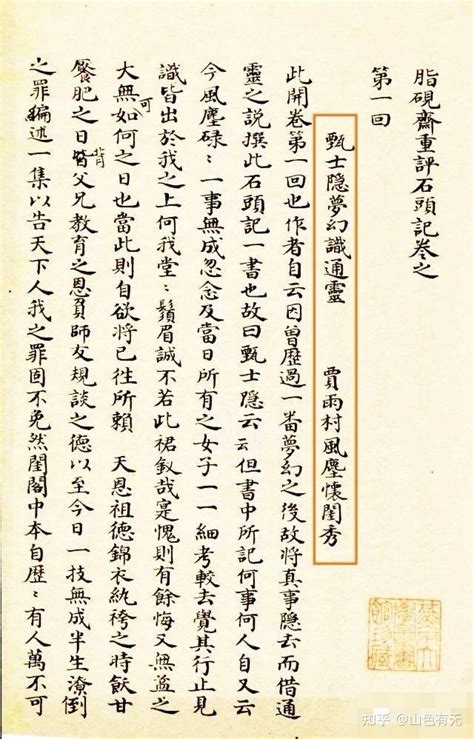 脂硯齋重評石頭記卷之
第一回
甄士隱夢幻識通靈　賈雨村風塵懷閨秀
此開卷第一回也作者自云因曾歷過一番夢幻之後故將真事隱去而借通
靈之說撰此石頭記一書也故曰甄士隱云云但書中所記何事何人自又云
今風塵碌〻一事無成忽念及當日所有之女子一一細考較去覺其行止見
識皆出於我之上何我堂〻鬚眉誠不若此裙釵哉寔愧則有餘悔又無益之
大無可如何之日也當此則自欲將已往所賴　天恩祖德錦衣紈袴之時飫甘
饜肥之日背父兄教育之恩負師友規談之德以至今日一技無成半生潦倒
之罪編述一集以告天下人我之罪固不免然閨閣中本自歷〻有人萬不可
知乎 @山色有无